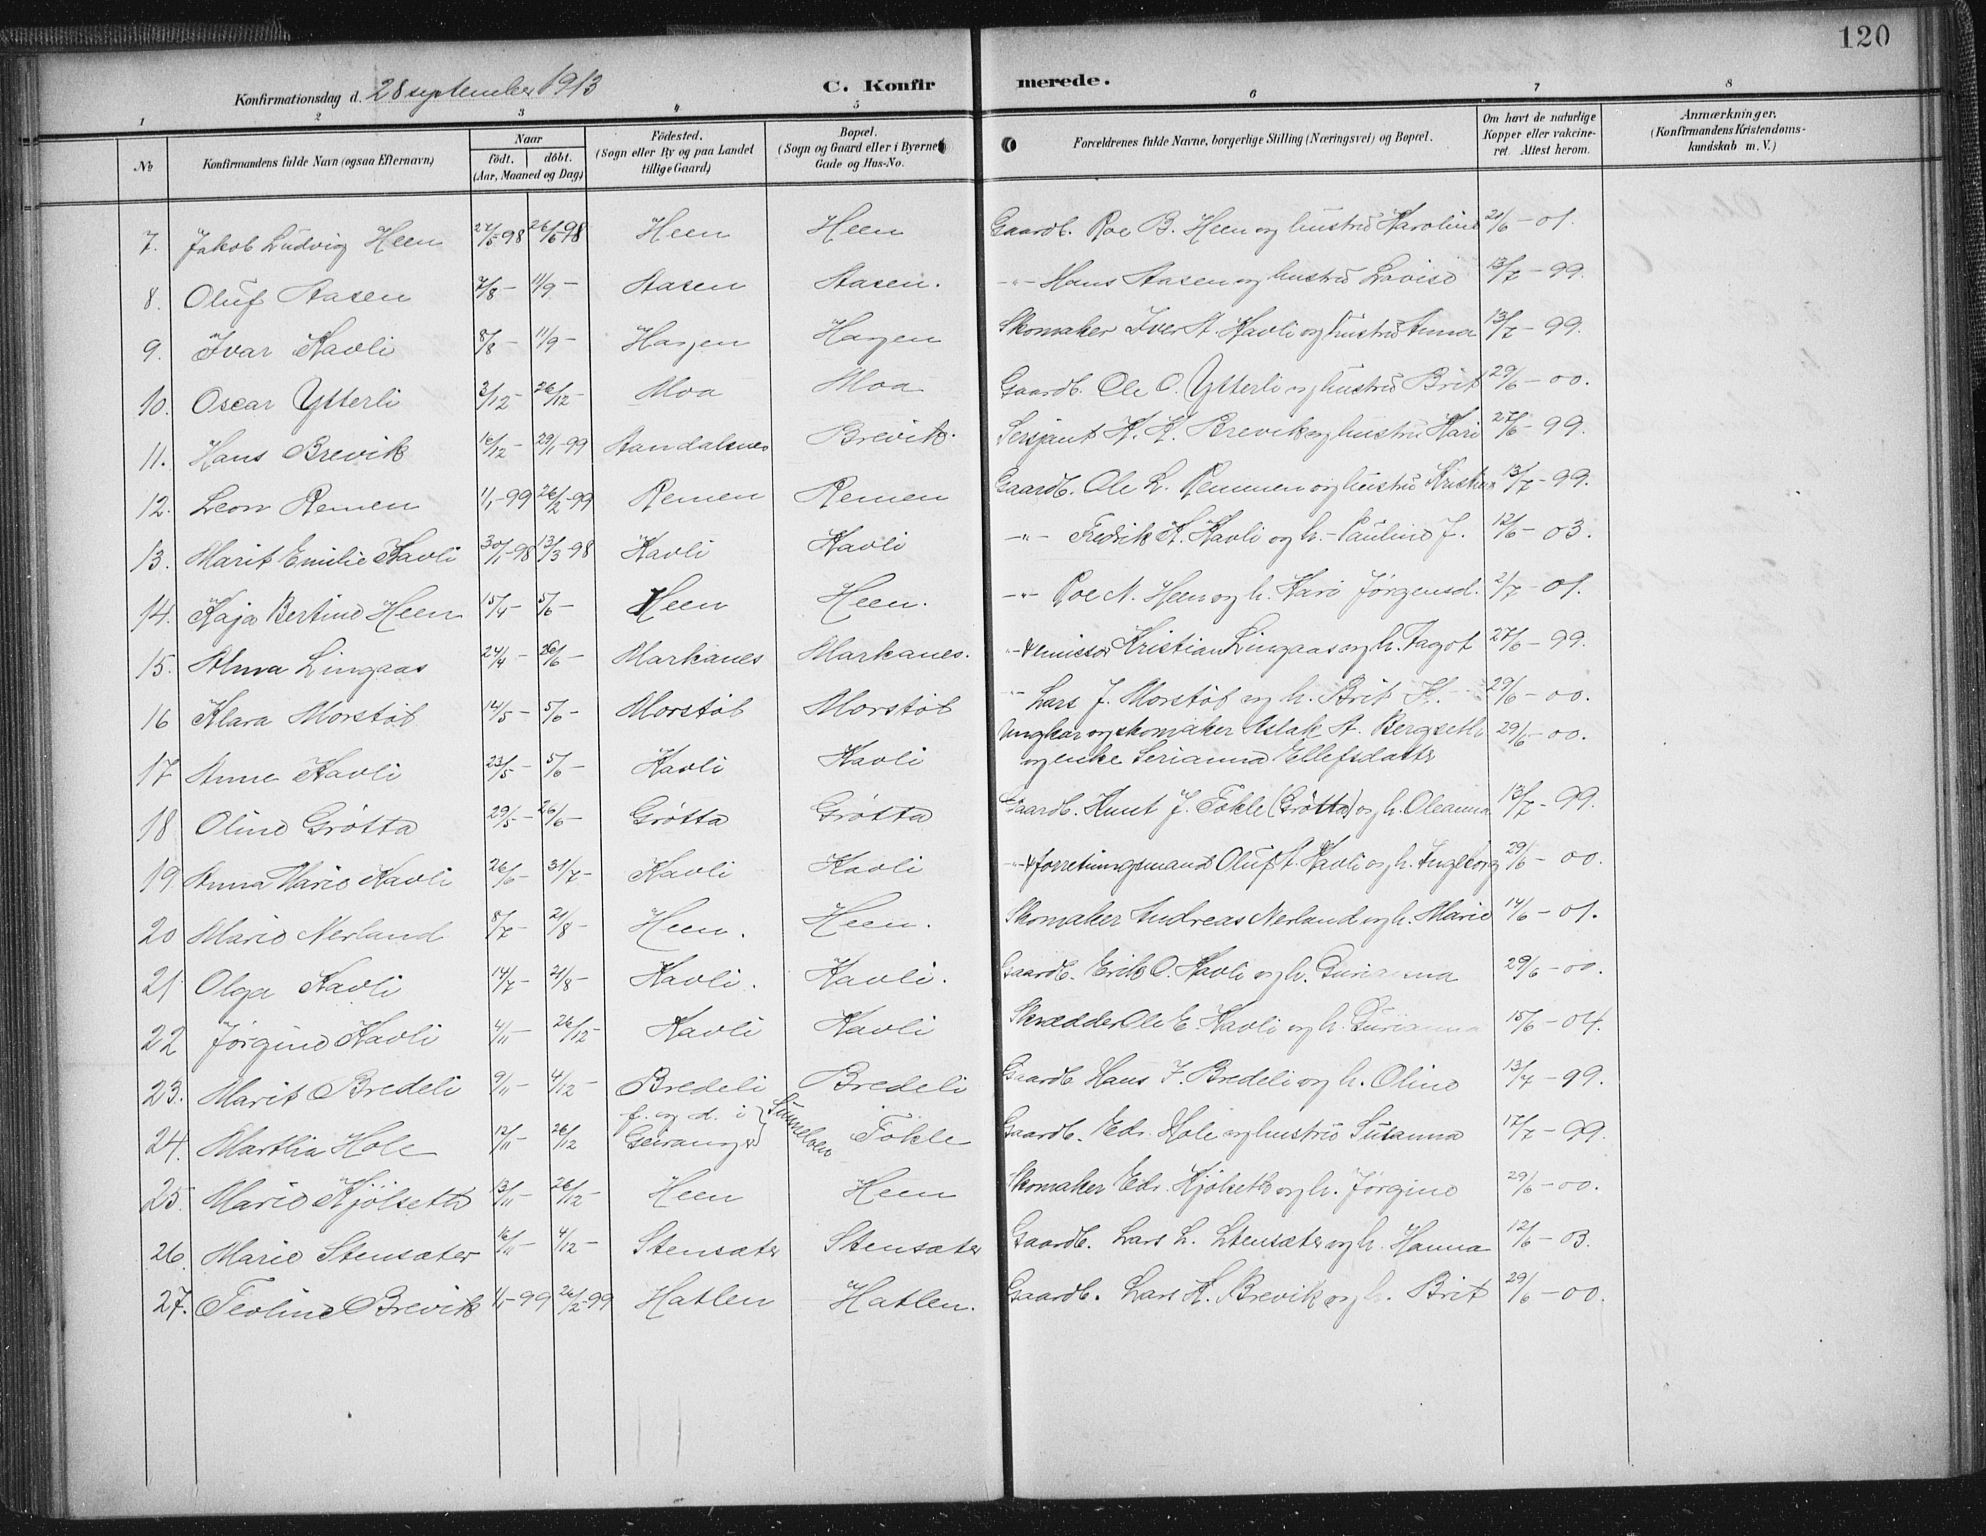 120
Konfirmationsdag d. 28 september 1913 C. Konfirmerede.
1 2 3 4 5 6 7 8
No Konfirmandens fulde Navn (ogsaa Efternavn) Naar født. døbt. (Aar, Maaned og Dag) Fødested. (Sogn eller By og paa Landet tillige Gaard) Bopæl. (Sogn og Gaard eller i Byerne Gade og Hus-No. Forældrenes fulde Navne, borgerlige Stilling (Næringsvei) og Bopæl. Om havt de naturlige Kopper eller vakcineret. Attest herom. Anmærkninger. (Konfirmandens Kristendomskundskab m. V.)
7. Jakob Ludvig Heen 27/5-98 26/6-98 Heen Heen Gaardb. Roe B. Heen og hustru Karoline 21/6 - 01.
8. Oluf Aasen 7/8 - 11/9 - Aasen Aasen. -"- Hans Aasen og hustru Lovise 13/7 - 99.
9. Ivar Kavli 8/8 - 11/9 - Hagen Hagen Skomaker Iver A. Kavli og hustru Anna 13/7 - 99.
10. Oscar Ytterli 3/12 - 26/12 - Moa Moa Gaardb. Ole O. Ytterli og hustru Brit 29/6 - 00.
11. Hans Brevik 16/12 - 29/1 99 Aandalsnes Brevik. Sersjant K. K. Brevik og hustru Kari 27/6 - 99.
12. Leon Remen 1/1-99 26/2-99 Remen Remen Gaardb. Ole L. Remmen og hustru Kristine 13/7 - 99.
13. Marit Emilie Kavli 30/1-98 13/3-98 Kavli Kavli -"- Fredrik A. Kavli og h. Pauline J. 12/6 - 03.
14. Kaja Bertine Heen 15/4 - 5/6 - Heen Heen. -"- Roe N. Heen og h. Kari Jørgensd. 2/7 - 01.
15. Alma Lingaas 24/4 - 26/6 - Markanes Markanes. -"- & emissør Kristian Lingaas og h. Jagot 27/6 - 99.
16 Klara Morstøl 14/5 - 5/6 - Morstøl Morstøl -"- Lars J. Morstøl og h. Brit K. 29/6 - 00.
17 Anne Kavli 23/5 - 5/6 - Kavli Kavli Ungkar og skomaker Aslak A. Bergseth og enke Serianna Ellefsdatter 29/6 - 00.
18 Oline Grøtta 29/5 - 26/6 - Grøtta Grøtta Gaardb. Knut J. Tokle (Grøtta) og h. Oleanna 13/7 - 99.
19 Anna Marie Kavli 26/6 - 31/7 - Kavli Kavli -"- & forretningsmand Oluf A. Kavli og h. Ingeborg 29/6 - 00.
20 Marie Nerland 8/7 - 21/8 - Heen. Heen. Skomaker Andreas Nerland og h. Marie 14/6 - 01.
21 Olga Kavli 14/7 - 21/8 - Kavli. Kavli. Gaardb. Erik O. Kavli og h. Gurianna 29/6 - 00.
22 Jørgine Kavli 4/11 - 26/12 - Kavli Kavli Skrædder Ole E. Kavli og h. Gurianna 15/6 - 04.
23. Marit Bredeli 9/11 - 4/12 - Bredeli Bredeli Gaardb. Hans J. Bredeli og h. Oline 13/7 - 99.
24. Martha Hole 12/11 - 26/12 f. og d. i Geiranger Sunnelven Tokle Gaardb. Edv. Hole og hustru Susanna 17/7 - 99.
25. Marie Kjølseth 13/11 - 26/12 - Heen Heen Skomaker Edv. Kjølseth og h. Jørgine 29/6 - 00.
26. Marie Stensæter 16/11 - 4/12 - Stensæter Stensæter Gaardb. Lars L. Stensæter og h. Hanna 12/6 - 03.
27. Teoline Brevik 1/1-99 26/2-99 Hatlen Hatlen. Gaardb. Lars K. Brevik og h. Brit 29/6 - 00.